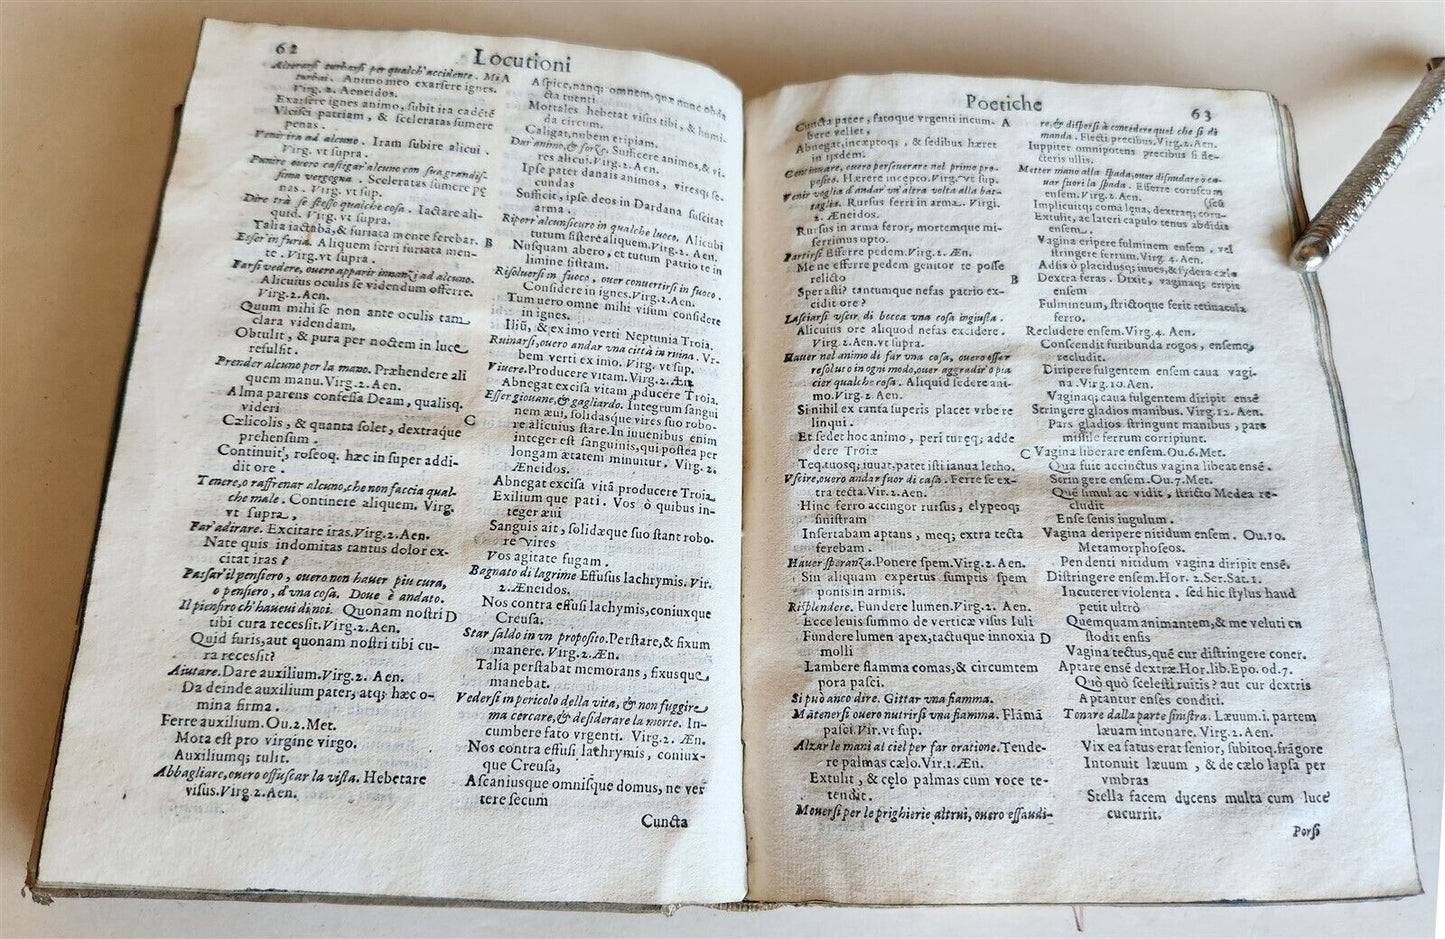 62
Locutioni
Alterarsi turbarsi per qualch'accidente. Mi A
turbai. Animo meo exarsere ignes.
Virg. 2. Aeneidos.
Exarsere ignes animo, subit ira cadētē
Vlcisci patriam, & sceleratas sumere
penas.
Venir ira ad alcuno. Iram subire alicui.
Virg. vt supra.
Punire ouero castigar alcuno con sua grandis-
sima vergogna. Sceleratas sumere pę
nas. Virg. vt sup.
Dire trà se stesso qualche cosa. Iactare ali-
quid. Virg. vt supra.
Talia iactabā, & furiata mente ferebar. B
Esser in furia. Aliquem ferri furiata men-
te. Virg. vt supra.
Farsi vedere, ouero apparir innanzi ad alcuno.
Alicuius oculis se videndum offerre.
Virg. 2. Aen.
Quum mihi se non ante oculis tam
clara videndam,
Obtulit, & pura per noctem in luce
refulsit.
Prender alcuno per la mano. Præhendere ali
quem manu. Virg. 2. Aen.
Alma parens confessa Deam, qualisq.
videri
Cælicolis, & quanta solet, dextraque C
prehensum.
Continuit, roseoq. hæc insuper addi-
dit ore.
Tenere, o raffrenar alcuno, che non faccia qual-
che male. Continere aliquem. Virg.
vt supra,
Far' adirare. Excitare iras. Virg. 2. Aen.
Nate quis indomitas tantus dolor ex-
citat iras?
Passar'il pensiero, ouero non hauer piu cura,
o pensiero, d'vna cosa. Doue è andato.
Il pensiero ch'haueui di noi. Quonam nostri D
tibi cura recessit. Virg. 2. Aen.
Quid furis, aut quonam nostri tibi cu-
ra recessit?
Aiutare. Dare auxilium. Virg. 2. Aen.
Da deinde auxilium pater, atq; hæc o-
mina firma.
Ferre auxilium. Ou. 2. Met.
Mota est pro virgine virgo.
Auxiliumq; tulit.
Abbagliare, ouero offuscar la vista. Hebetare
visus. Virg. 2. Aen.
Aspice, nanq; omnem, quæ nunc obdu
cta tuenti
Mortales hebetat visus tibi, & humi-
da circum.
Caligat, nubem eripiam.
Dar animo, & forze. Sufficere animos, & vi-
res alicui. Virg. 2. Aen.
Ipse pater danais animos, viresq; se-
cundas
Sufficit, ipse deos in Dardana suscitat
arma.
Riporr' alcun sicuro in qualche luoco. Alicubi
tutum sistere aliquem. Virg. 2. Aen.
Nusquam abero, et tutum patrio te in
limine sistam.
Risoluersi in fuoco, ouer conuertirsi in fuoco.
Considere in ignes. Virg. 2. Aen.
Tum uero omne mihi visum considere
in ignes.
Iliū, & ex imo verti Neptunia Troia.
Ruinarsi, ouero andar vna città in ruina. Vr-
bem verti ex imo. Virg. vt sup.
Viuere. Producere vitam. Virg. 2. Æn.
Abnegat excisa vitam producere Troia.
Esser giouane, & gagliardo. Integrum sangui
nem æui, solidasque vires suo robo-
re alicuius stare. In iuuenibus enim
integer est sanguinis, qui postea per
longam ætatem minuitur. Virg. 2.
Æneidos.
Abnegat excisa vitā producere Troia
Exilium que pati. Vos ò quibus in-
teger æui
Sanguis ait, solidæque suo stant robo-
re vires
Vos agitate fugam.
Bagnato di lagrime Effusus lachrymis. Vir.
2. Æneidos.
Nos contra effusi lachymis, coniuxque
Creusa.
Star saldo in vn proposito. Perstare, & fixum
manere. Virg. 2. Æn.
Talia perstabat memorans, fixusque
manebat.
Vedersi in pericolo della vita, & non fuggire
ma cercare, & desiderare la morte. In-
cumbere fato vrgenti. Virg. 2. Æn.
Nos contra effusi lachrymis, coniux-
que Creusa,
Ascaniusque omnisque domus, ne ver
tere secum
Cuncta
Poetiche
63
Cuncta pater, fatoque vrgenti incum- A
bere vellet,
Abnegat, inceptoq;, & sedibus hæret
in ipsdem.
Continuare, ouero perseuerare nel primo pro-
posito. Hærere incepto. Virg. vt sup.
Venir voglia d'andar vn'altra volta alla bat-
taglia. Rursus ferri in arma. Virgi.
2. Æneidos.
Rursus in arma feror, mortemque mi-
serrimus opto.
Partirsi Efferre pedem. Virg. 2. Æn.
Me ne efferre pedem genitor te posse
relicto B
Sperasti? tantumque nefas patrio ex-
cidit ore?
Lasciarsi vscir di bocca vna cosa ingiusta.
Alicuius ore aliquod nefas excidere.
Virg. 2. Aen. vt supra.
Hauer nel animo di far vna cosa, ouero esser
resoluto in ogni modo, ouer aggradir' o pia
cier qualche cosa. Aliquid sedere ani-
mo. Virg. 2. Aen.
Si nihil ex tanta superis placet vrbe re
linqui.
Et sedet hoc animo, peri turęq; adde
dere Troiæ
Teq. tuosq; iuuat, patet isti ianua lecho.
Vscire, ouero andar fuor di casa. Ferre se ex-
tra tecta. Vir. 2. Aen.
Hinc ferro accingor rursus, clypeoq;
sinistram
Insertabam aptans, meq; extra tecta
ferebam.
Hauer speranza. Ponere spem. Virg. 2. Aen.
Sin aliquam expertus sumptis spem
ponis in armis.
Risplendere. Fundere lumen. Virg. 2. Aen.
Ecce leuis summo de verticæ visus Iuli
Fundere lumen apex, tactuque innoxia D
molli
Lambere flamma comas, & circumtem
pora pasci.
Si può anco dire. Gittar vna fiamma.
Mātenersi ouero nutrirsi vna fiamma. Flāmā
pasci. Vir. vt sup.
Alzar le mani al ciel per far oratione. Tende-
re palmas cælo. Vir. 1. Æn.
Extulit, & cęlo palmas cum voce te-
tendit.
Mouersi per le prighierie altrui, ouero essaudi-
re, & dispersi à concedere quel che si di
manda. Flecti precibus. Virg. 2. Aen.
Iuppiter omnipotens precibus si fle-
cteris ullis.
Metter mano alla spada, ouer disnudare o ca-
uar fuori la spada. Efferre coruscum
ensem. Virg. 2. Aen. (seū
Implicuitq; comā lęua, dextraq; coru-
Extulit, ac lateri capulo tenus abdidit
ensem.
Vagina eripere fulminem ensem, vel
stringere ferrum. Virg. 4. Aen.
Adsis ò placidusq; iuues, & sydera cælo
Dextra feras. Dixit, vaginaq; eripit
ensem
Fulmineum, strictoque ferit retinacula
ferro.
Recludere ensem. Virg. 4. Aen.
Conscendit furibunda rogos, ensemq,
recludit.
Diripere fulgentem ensem caua vagi-
na. Virg. 10. Aen.
Vaginaq; caua fulgentem diripit ensē
Stringere gladios manibus. Virg. 12. Aen.
Pars gladios stringunt manibus, pars
missile ferrum corripiunt.
C Vagina liberare ensem. Ou. 6. Met.
Qua fuit accinctus vagina libeat ensē.
Stringere ensem. Ou. 7. Met.
Quē simul ac vidit, stricto Medea re-
cludit
Ense senis iugulum.
Vagina deripere nitidum ensem. Ou. 10.
Metamorphoseos.
Pendenti nitidum vagina diripit ensē.
Distringere ensem. Hor. 2. Ser. Sat. 1.
Incuteret violenta. sed hic stylus haud
petit ultrò
Quemquam animantem, & me veluti cu
stodit ensis
Vagina tectus, quē cur distringere coner.
Aptare ensē dextræ. Hor. lib. Epo. od. 7.
Quò quò scelesti ruitis? aut cur dextris
Aptantur enses conditi.
Tonare dalla parte sinistra. Læuum. i. partem
læuam intonare. Virg. 2. Aen.
Vix ea fatus erat senior, subitoq. frāgore
Intonuit læuum, & de cælo lapsa per
vmbras
Stella facem ducens multa cum luce
cucurrit.
Porsi